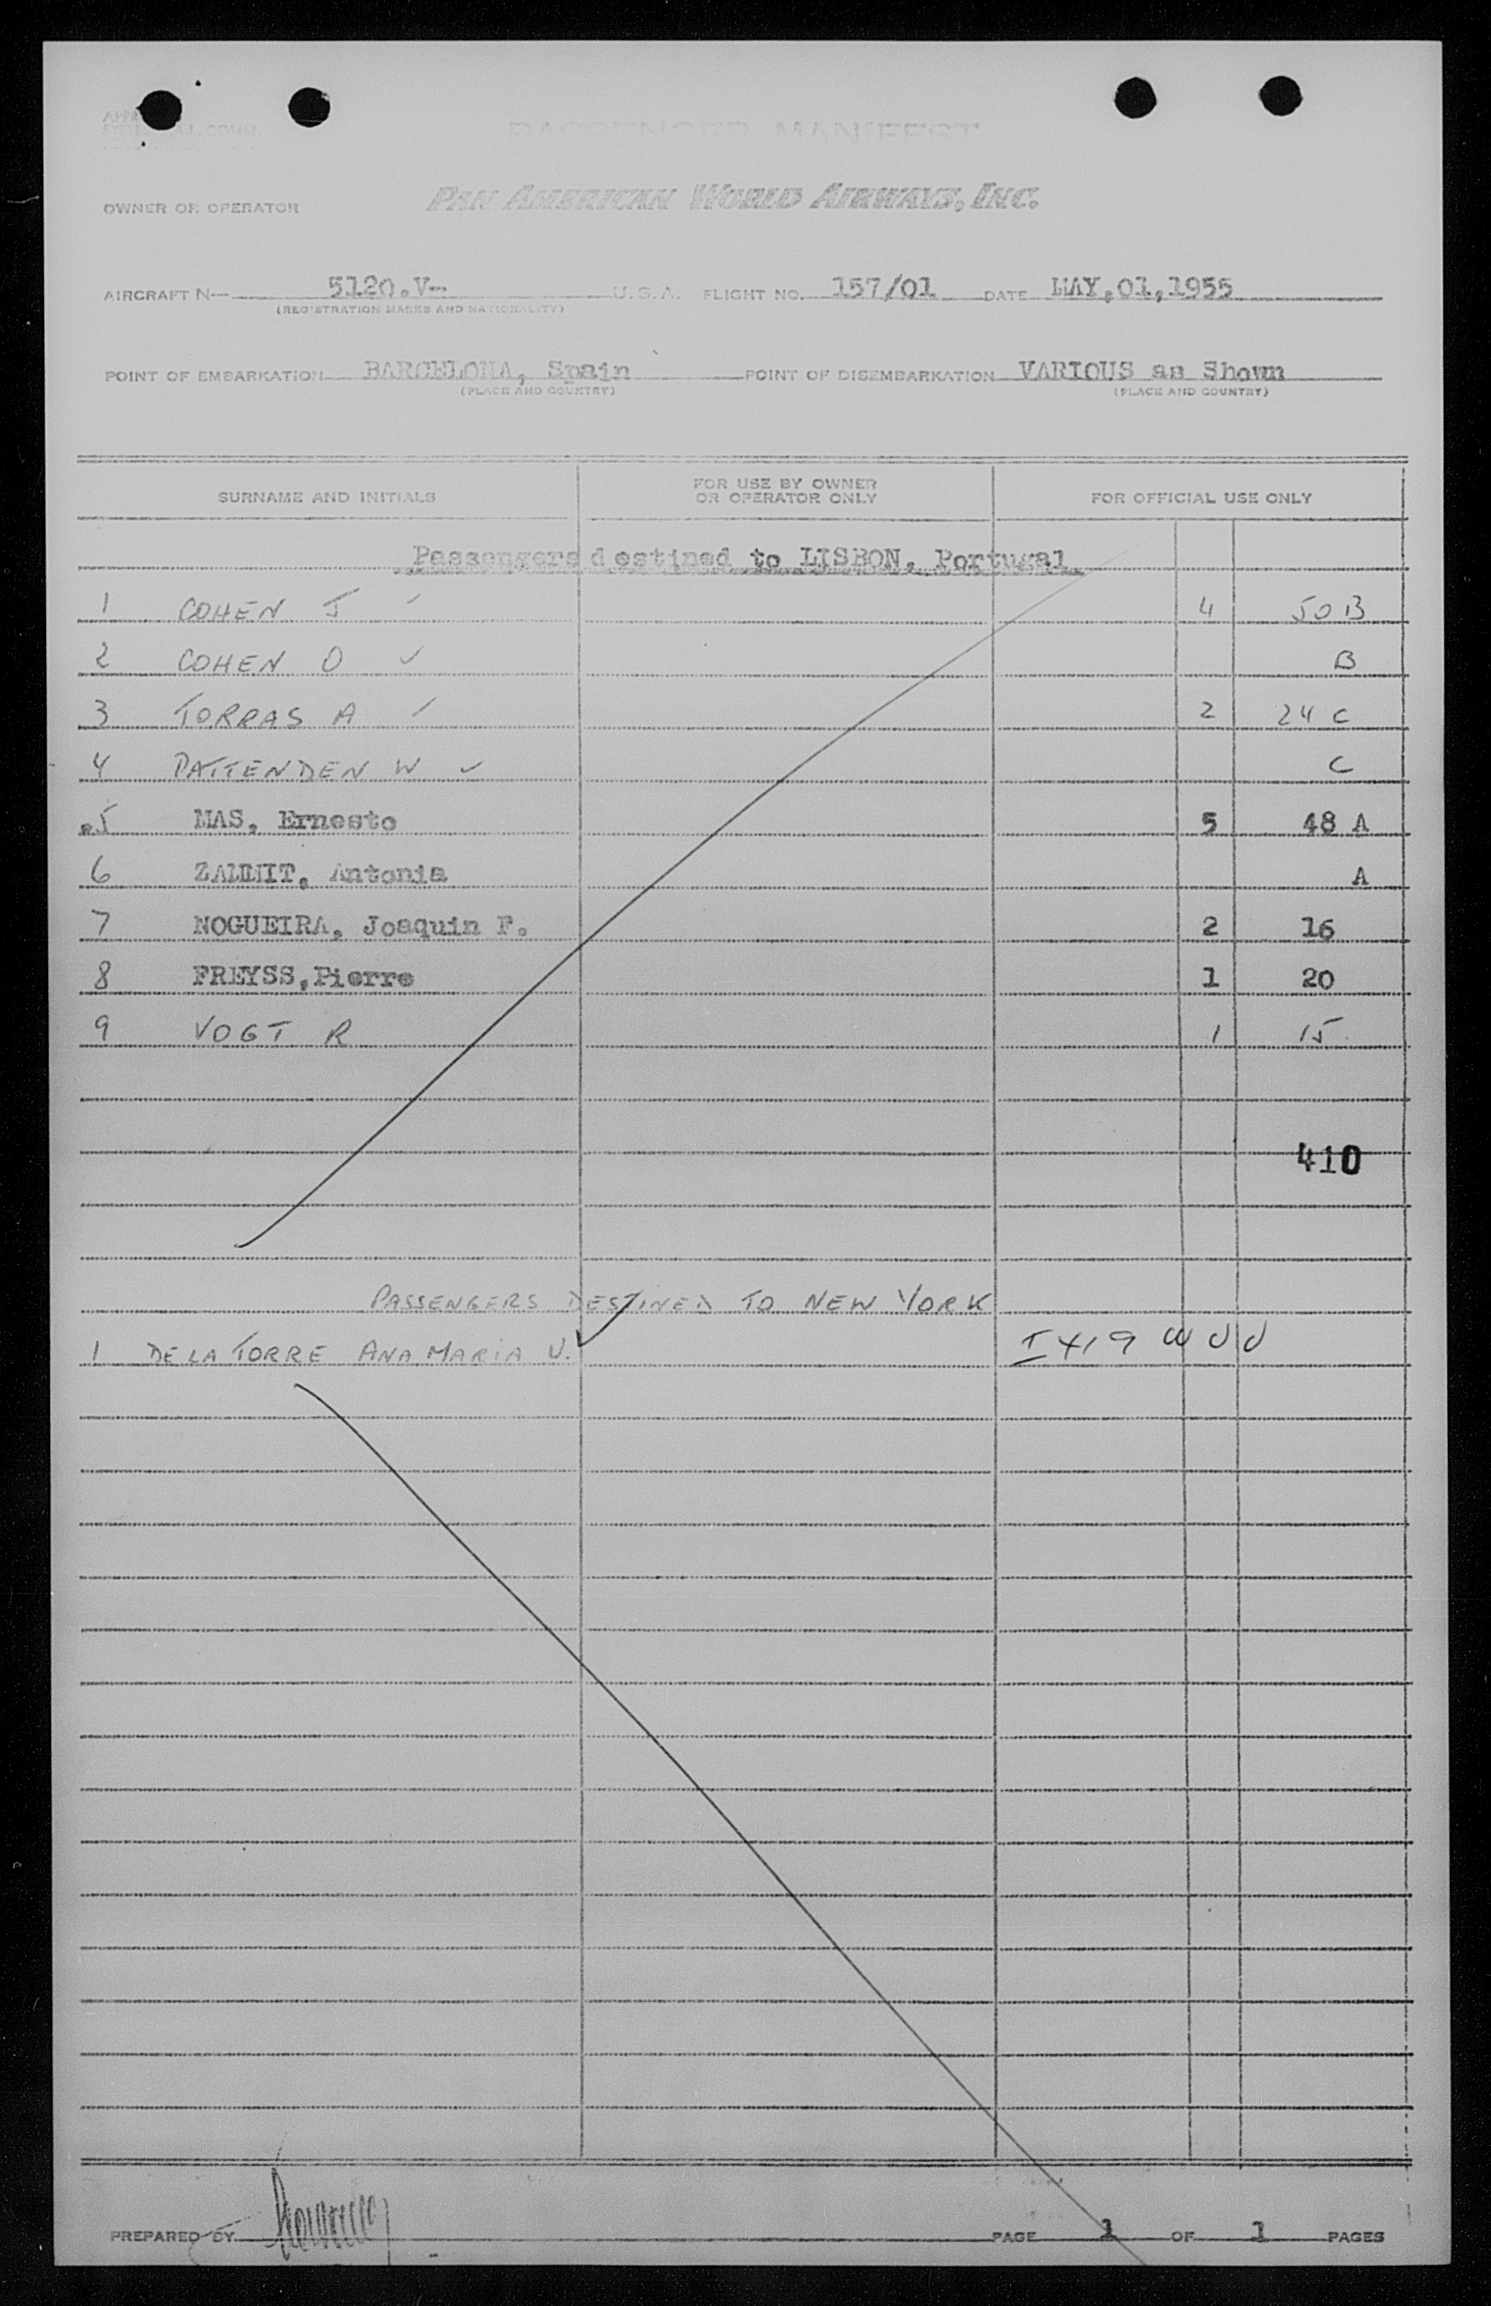 PASSENGER MANIFEST
OWNER OR OPERATOR PAN AMERICAN WORLD AIRWAYS, INC.
AIRCRAFT N— 5120.V— U.S.A. FLIGHT NO. 157/01 DATE MAY,01,1955
(REGISTRATION MARKS AND NATIONALITY)
POINT OF EMBARKATION BARCELONA, Spain POINT OF DISEMBARKATION VARIOUS as Shown
(PLACE AND COUNTRY) (PLACE AND COUNTRY)
SURNAME AND INITIALS FOR USE BY OWNER OR OPERATOR ONLY FOR OFFICIAL USE ONLY
Passengers destined to LISBON, Portugal
1 COHEN J 4 50 B
2 COHEN O ✓ B
3 TORRAS A 2 24 C
4 PATTENDEN W ✓ C
5 MAS, Ernesto 5 48 A
6 ZAMMIT, Antonia A
7 NOGUEIRA, Joaquin F. 2 16
8 FREYSS,Pierre 1 20
9 VOGT R 1 15
410
PASSENGERS DESTINED TO NEW YORK
1 DE LA TORRE ANA MARIA V. ✓ I 419
PREPARED BY PAGE 1 OF 1 PAGES